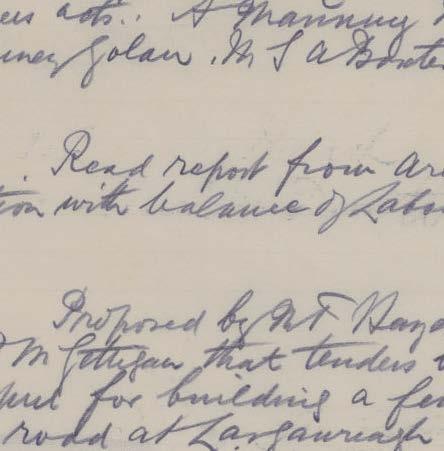 acts. A Manning
Golan. M S A Boate
Read report from Ar
tion with balance of Labo
Proposed by Mr F Hayd
McGettigan that tenders
for building a fen
road at Largaureagh